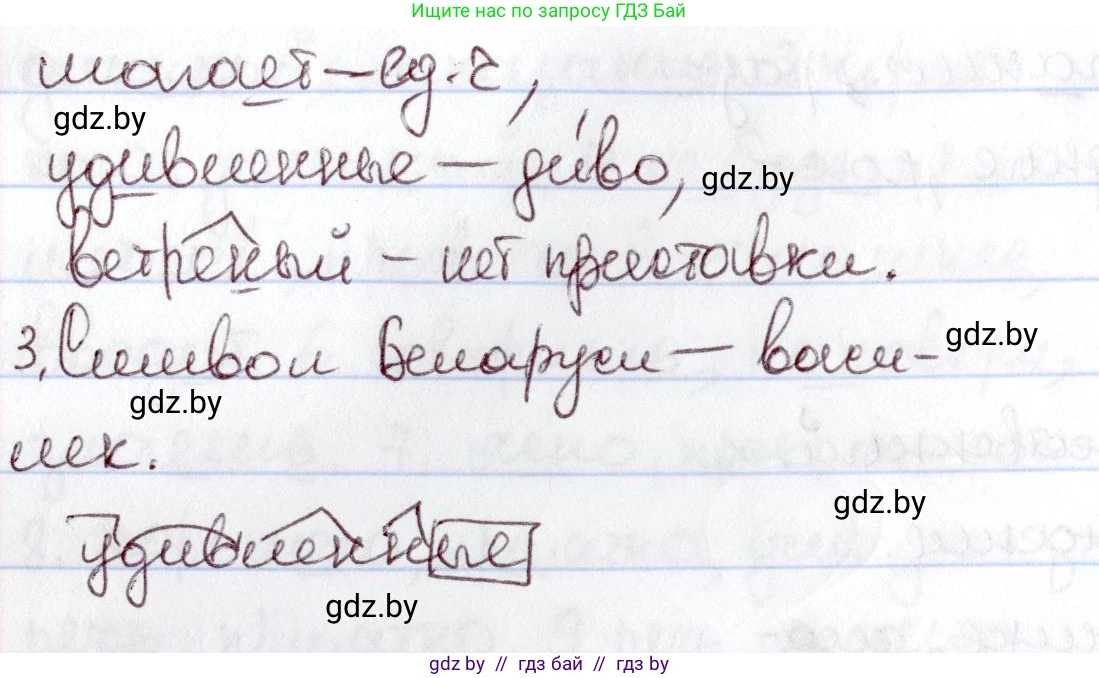 Ищите нас по запросу ГДЗ Бай
шагает – ед. ч.,
gdz.by
удивленные – ди́во,
gdz.by
ветреный – нет приставки.
3. Символ Беларуси – васи-
gdz.by
gdz.by
лек.
gdz.by
удивленные
gdz.by
gdz.by // гдз бай // гдз by